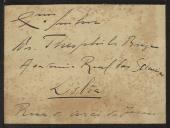 Exmo Senhor
Dr. Theophilo Braga
Academia Real das Sciencias
Lisboa
Rua do Arco de Jesus